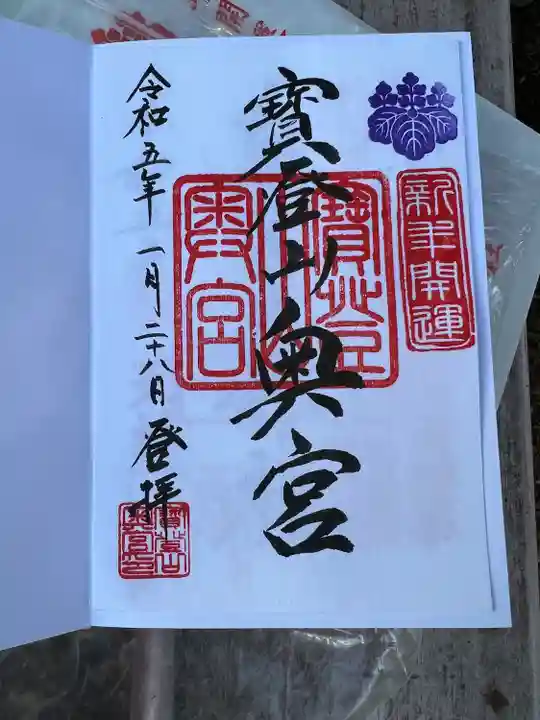 新年開運
寶登山奥宮
寶登山
奥宮
令和五年 一月二十八日 登拝
寶登山
奥宮之印